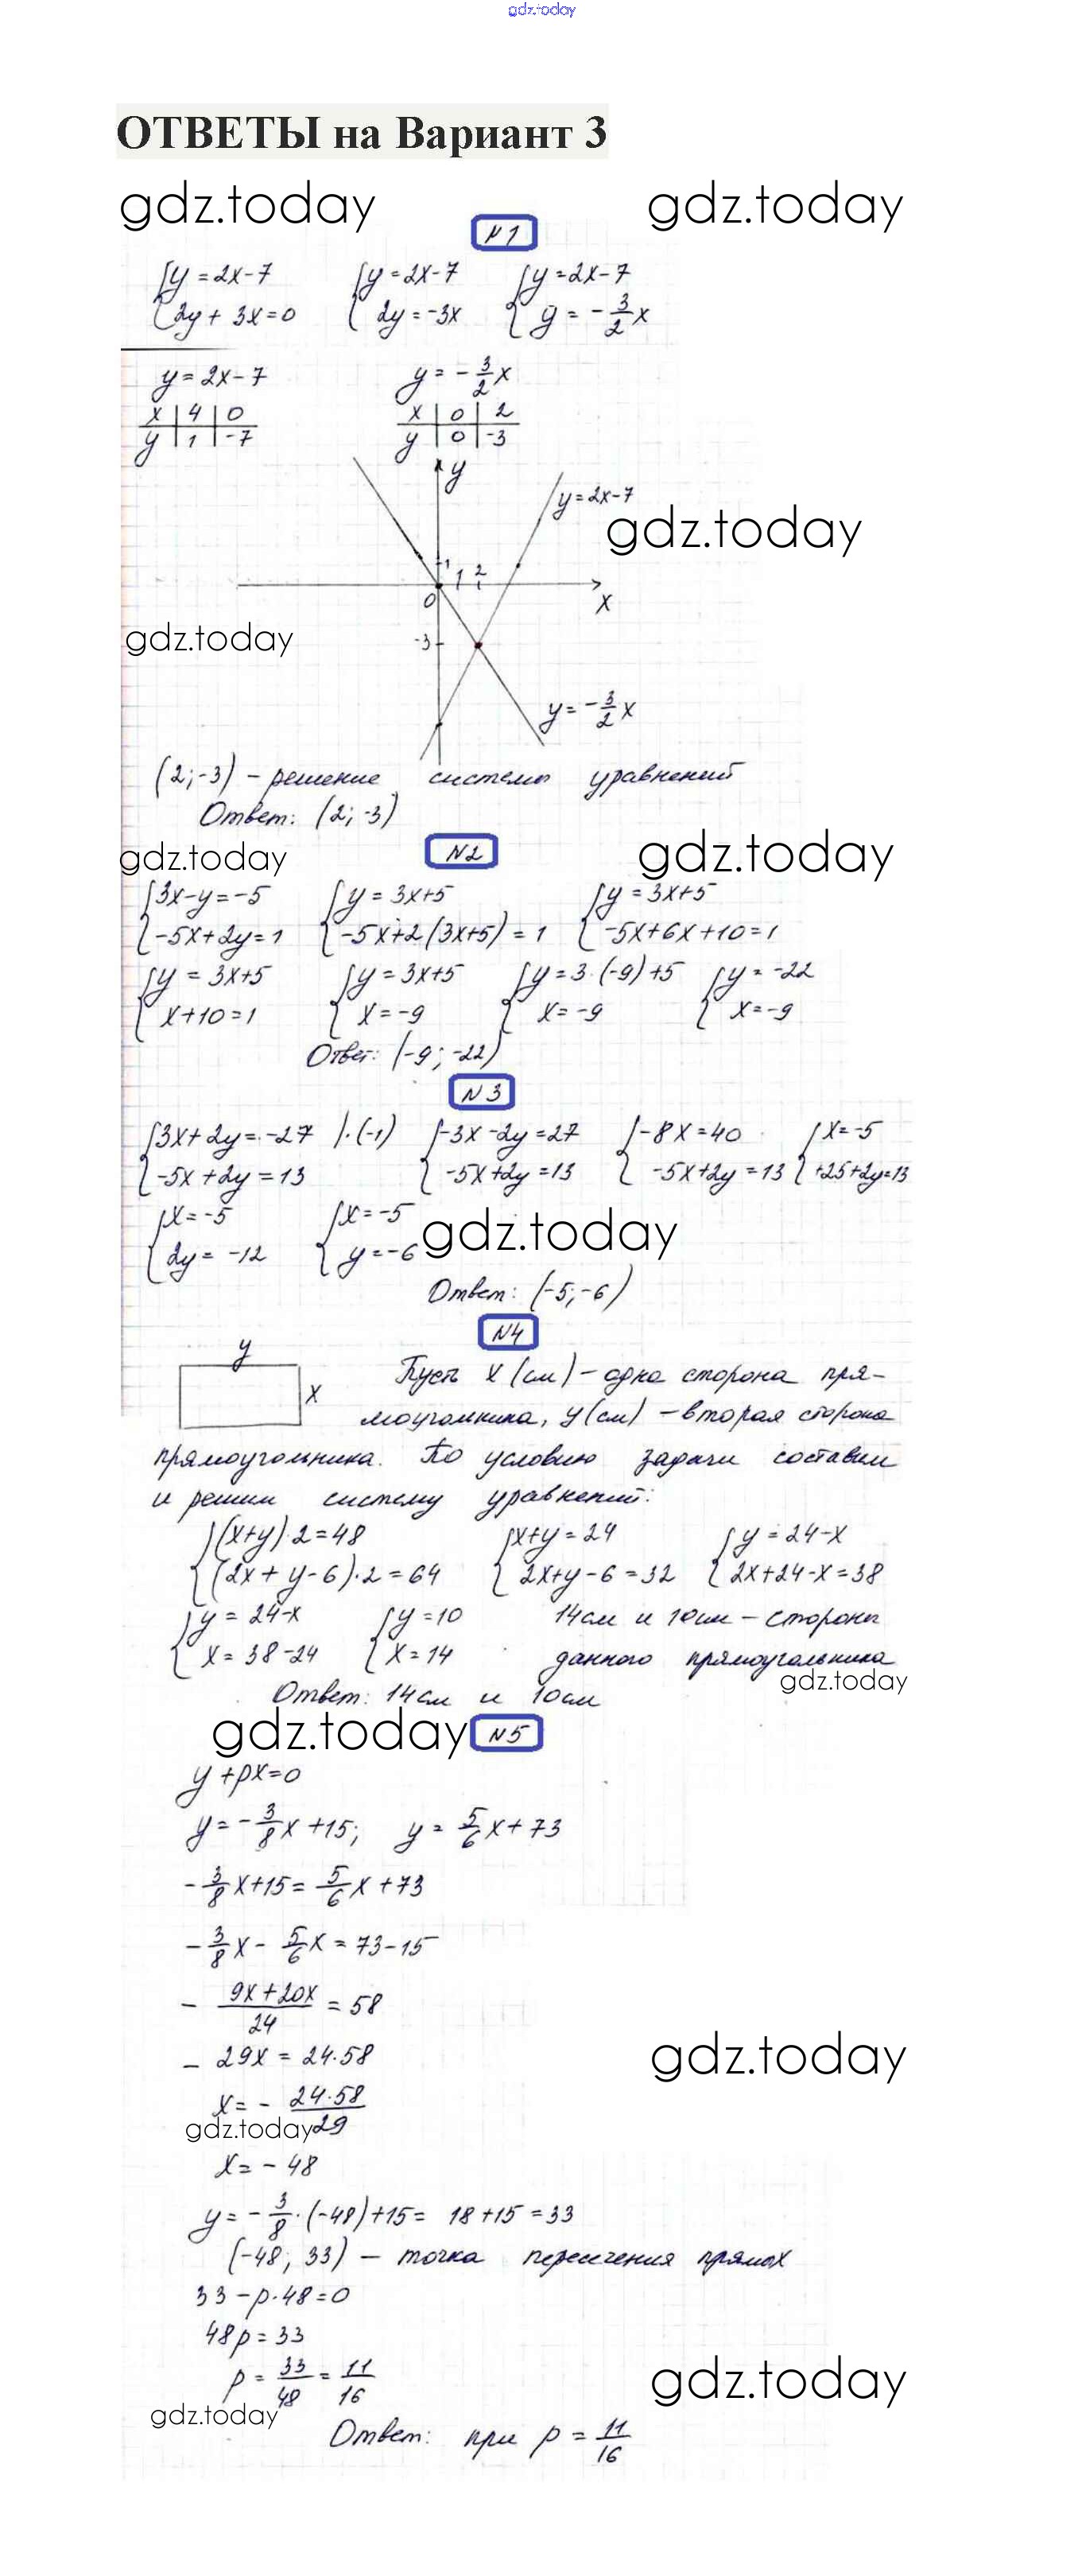 gdz.today
ОТВЕТЫ на Вариант 3
gdz.today gdz.today
N1
{y = 2x-7 {y = 2x-7 {y = 2x-7
{2y + 3x = 0 {2y = -3x {y = -3/2 x
y = 2x-7 y = -3/2 x
x | 4 | 0 x | 0 | 2
y | 1 | -7 y | 0 | -3
y
y = 2x-7
gdz.today
1
1 2
0 x
gdz.today
-3
y = -3/2 x
(2; -3) - решение системы уравнений
Ответ: (2; -3)
gdz.today N2 gdz.today
{3x-y = -5 {y = 3x+5 {y = 3x+5
{-5x+2y = 1 {-5x+2(3x+5) = 1 {-5x+6x+10 = 1
{y = 3x+5 {y = 3x+5 {y = 3·(-9)+5 {y = -22
{x+10 = 1 {x = -9 {x = -9 {x = -9
Ответ: (-9; -22)
N3
{3x+2y = -27 |·(-1) {-3x-2y = 27 {-8x = 40 {x = -5
{-5x+2y = 13 {-5x+2y = 13 {-5x+2y = 13 {+25+2y = 13
{x = -5 {x = -5
{2y = -12 {y = -6
gdz.today
Ответ: (-5; -6)
N4
y
x
Пусть x (см) - одна сторона пря-
моугольника, y (см) - вторая сторона
прямоугольника. По условию задачи составим
и решим систему уравнений:
{(x+y)·2 = 48 {x+y = 24 {y = 24-x
{(2x+y-6)·2 = 64 {2x+y-6 = 32 {2x+24-x = 38
{y = 24-x {y = 10 14см и 10см - стороны
{x = 38-24 {x = 14 данного прямоугольника
gdz.today
Ответ: 14см и 10см
gdz.today N5
y + px = 0
y = -3/8 x + 15; y = 5/6 x + 73
-3/8 x + 15 = 5/6 x + 73
-3/8 x - 5/6 x = 73-15
- (9x+20x)/24 = 58
- 29x = 24·58
gdz.today
x = - (24·58)/29
gdz.today
x = - 48
y = -3/8·(-48)+15 = 18+15 = 33
(-48; 33) - точка пересечения прямых
33 - p·48 = 0
48p = 33
p = 33/48 = 11/16
gdz.today
gdz.today
Ответ: при p = 11/16